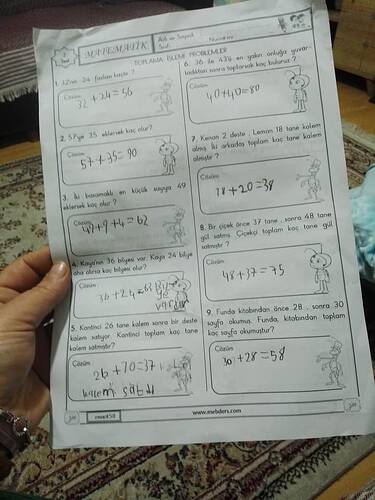 2
Sınıf
MATEMATİK
Adı ve Soyadı
Sınıfı
Numarası
TOPLAMA İŞLEMİ PROBLEMLERİ
1. 32'nin 24 fazlası kaçtır ?
Çözüm
32 + 24 = 56
2. 57'ye 35 eklersek kaç olur?
Çözüm
57 + 35 = 90
3. İki basamaklı en küçük sayıya 49
eklersek kaç olur ?
Çözüm
49 + 9 + 4 = 62
4. Kaya'nın 36 bilyesi var. Kaya 24 bilye
daha alırsa kaç bilyesi olur?
Çözüm
36 + 24 =
5. Kantinci 26 tane kalem sonra bir deste
kalem satıyor. Kantinci toplam kaç tane
kalem satmıştır ?
Çözüm
26 + 70 = 37
6. 36 ile 43'ü en yakın onluğa yuvar-
ladıktan sonra toplarsak kaç buluruz ?
Çözüm
40 + 40 = 80
7. Kenan 2 deste , Leman 18 tane kalem
almış. İki arkadaş toplam kaç tane kalem
almıştır ?
Çözüm
18 + 20 = 38
8. Bir çiçekçi önce 37 tane , sonra 48 tane
gül satmış. Çiçekçi toplam kaç tane gül
satmıştır ?
Çözüm
48 + 37 = 75
9. Funda kitabından önce 28 , sonra 30
sayfa okumuş. Funda, kitabından toplam
kaç sayfa okumuştur?
Çözüm
30 + 28 = 58
www.mebders.com